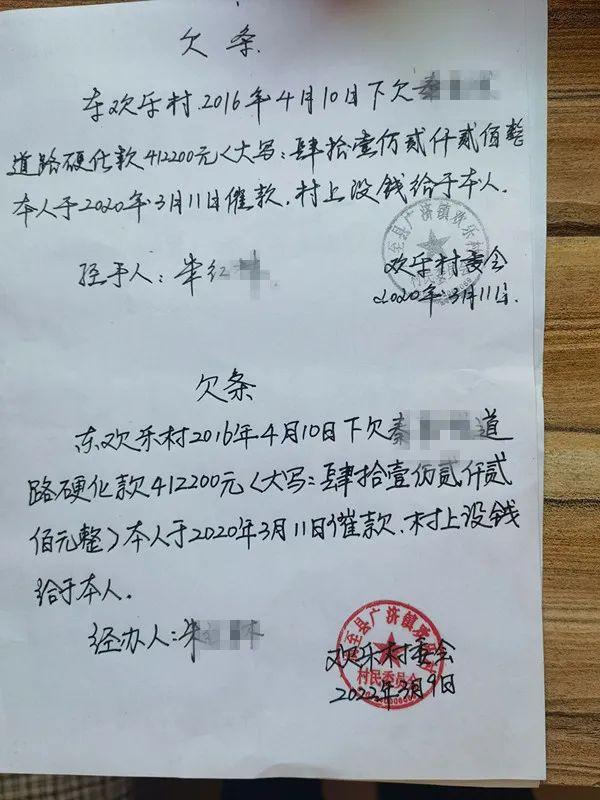 欠条
东欢乐村2016年4月10日下欠秦
道路硬化款412200元<大写:肆拾壹仿贰仟贰佰整
本人于2020年3月11日催款,村上没钱给于本人.
至县广济镇欢乐村
村民委员会
经手人:牟红
欢乐村委会
2020年3月11日.
欠条
东欢乐村2016年4月10日下欠秦道
路硬化款412200元<大写:肆拾壹仿贰仟贰
佰元整>本人于2020年3月11日催款,村上没钱
给于本人.
至县广济镇
村民委员会
经办人:
欢乐村委会
2022年3月9日